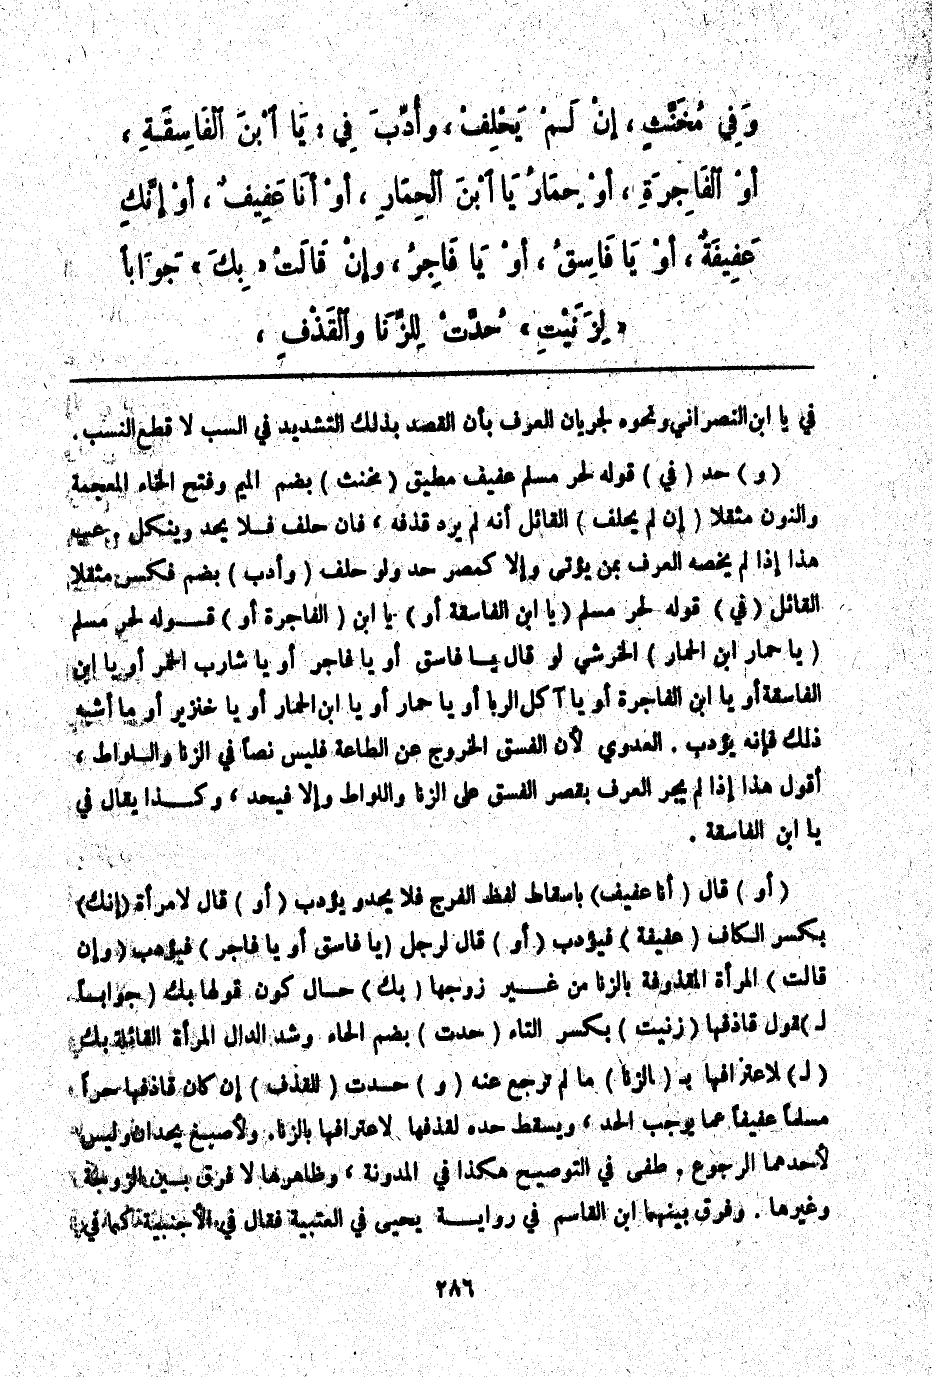 وَفِي مُخَنَّثٍ ، إِنْ لَـمْ يَحْلِفْ ، وأُدِّبَ فِي : يَا ٱبْنَ ٱلْفَاسِقَـةِ ،
أَوْ ٱلْفَاجِرَةِ ، أَوْ حِمَارُ يَا ٱبْنَ ٱلْحِمَارِ ، أَوْ أَنَا عَفِيفٌ ، أَوْ إِنَّكِ
عَفِيفَةٌ ، أَوْ يَا فَاسِقُ ، أَوْ يَا فَاجِرُ ، وإِنْ قَالَتْ « بِكَ » جَوَاباً
« لِزَنَيْتِ » حُدَّتْ لِلزَّنَا وٱلْقَذْفِ ،
في يا ابن النصراني ونحوه لجريان العرف بأن القصد بذلك التشديد في السب لا قطع النسب .
( و ) حد ( في ) قوله لحر مسلم عفيف مطيق ( مخنث ) بضم الميم وفتح الخاء المعجمة
والنون مثقلا ( إن لم يحلف ) القائل أنه لم يرد قذفه ، فان حلف فـلا يحد وينكل . عب
هذا إذا لم يخصه العرف بمن يؤتى وإلا كمصر حد ولو حلف ( وأدب ) بضم فكسر مثقلا
القائل ( في ) قوله لحر مسلم ( يا ابن الفاسقة أو ) يا ابن ( الفاجرة أو ) قـــوله لحر مسلم
( يا حمار ابن الحمار ) الخرشي لو قال يــا فاسق أو يا فاجر أو يا شارب الخمر أو يا ابن
الفاسقة أو يا ابن الفاجرة أو يا آكل الربا أو يا حمار أو يا ابن الحمار أو يا خنزير أو ما أشبه
ذلك فإنه يؤدب . العدوي لأن الفسق الخروج عن الطاعة فليس نصاً في الزنا والـلواط ،
أقول هذا إذا لم يجر العرف بقصر الفسق على الزنا واللواط وإلا فيحد ، وكـــذا يقال في
يا ابن الفاسقة .
( أو ) قال ( أنا عفيف) باسقاط لفظ الفرج فلا يحد و يؤدب ( أو ) قال لامرأة (إنك)
بكسر الـكاف ( عفيفة ) فيؤدب ( أو ) قال لرجل ( يا فاسق أو يا فاجر ) فيؤدب ( وإن
قالت ) المرأة المقذوفة بالزنا من غـــير زوجها ( بك ) حــال كون قولها بك ( جوابـاً
لـ )قول قاذفها ( زنيت ) بكسر التاء ( حدت ) بضم الحاء وشد الدال المرأة القائلة بك
( لـ ) لاعترافها بـ ( الزنا ) ما لم ترجع عنه ( و ) حــدت ( للقذف ) إن كان قاذفها حراً
مسلماً عفيفاً عما يوجب الحد ، ويسقط حده لقذفها لاعترافها بالزنا. ولأصبـغ يحدان وليس
لأحدهما الرجوع . طفى في التوضيح هكذا في المدونة ، وظاهرها لا فرق بــين الزوجة
وغيرها . وفرق بينهما ابن القاسم في روايـــة يحيى في العتبية فقال في الأجنبية كما في
٢٨٦